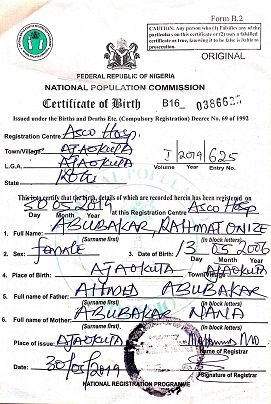 Form B.2
CAUTION: Any person who (1) Falsifies any of the particulars on this certificate or (2) uses a falsified certificate as true, knowing it to be false is liable to prosecution.
ORIGINAL
FEDERAL REPUBLIC OF NIGERIA
NATIONAL POPULATION COMMISSION
Certificate of Birth B16
Issued under the Births and Deaths Etc. (Compulsory Registration) Decree No. 69 of 1992
Registration Centre: Asco Hosp.
Town/Village: AJAOKUTA
L.G.A. AJAOKUTA
State KOGI
I 2019 625
Volume Year Entry No.
This is to certify that the birth, details of which are recorded herein has been registered on
30 05 2019 at this Registration Centre Asco Hosp
Day Month Year
1. Full Name: ABUBAKAR, RAHMAT ONIZE
(Surname first) (In block letters)
2. Sex: female 3. Date of Birth: 13 05 2006
Day Month Year
4. Place of Birth: AJAOKUTA Town/Village AJAOKUTA
5. Full Name of Father: AHMED ABUBAKAR
(Surname first) (In block letters)
6. Full Name of Mother: ABUBAKAR NANA
(Surname first) (In block letters)
Place of issue: AJAOKUTA
Name of Registrar
Date: 30/05/2019
Signature of Registrar
NATIONAL REGISTRATION PROGRAMME